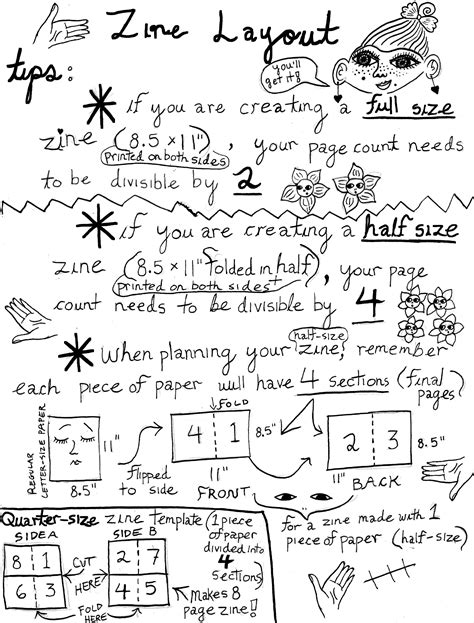 Zine Layout
tips:
you'll
get it!
* if you are creating a full size
zine (8.5 x 11"), your page count needs
printed on both sides
to be divisible by 2
* if you are creating a half size
zine (8.5 x 11" folded in half), your page
printed on both sides +
count needs to be divisible by 4
half-size
* When planning your zine, remember
each piece of paper will have 4 sections (final
pages)
REGULAR
LETTER-SIZE PAPER
11"
8.5"
flipped
to side
FOLD
4 1
8.5"
11"
FRONT
2 3
8.5"
11"
BACK
for a zine made with 1
piece of paper (half-size)
Quarter-size zine Template (1 piece
of paper
divided into
4
sections)
makes 8
page zine!
SIDE A
8 1
6 3
CUT
HERE
FOLD
HERE
SIDE B
2 7
4 5